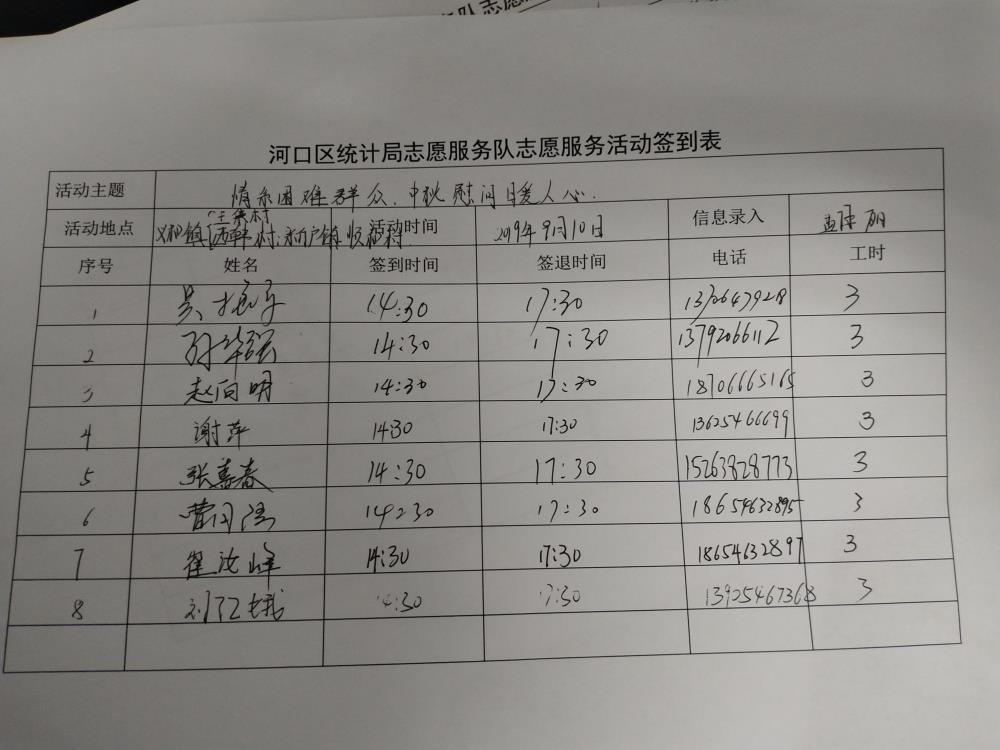 队志愿
河口区统计局志愿服务队志愿服务活动签到表
活动主题 情系困难群众.中秋慰问暖人心.
活动地点 活动时间 2019年9月10日 信息录入
序号 姓名 签到时间 签退时间 电话 工时
1 14:30 17:30 3
2 孙华强 14:30 17:30 13792066112 3
3 赵向明 14:30 17:30 18706665165 3
4 谢萍 14:30 17:30 13625466699 3
5 张喜春 14:30 17:30 15263828773 3
6 14:30 17:30 18654632895 3
7 翟汝峰 14:30 17:30 18654632897 3
8 14:30 17:30 13925467368 3